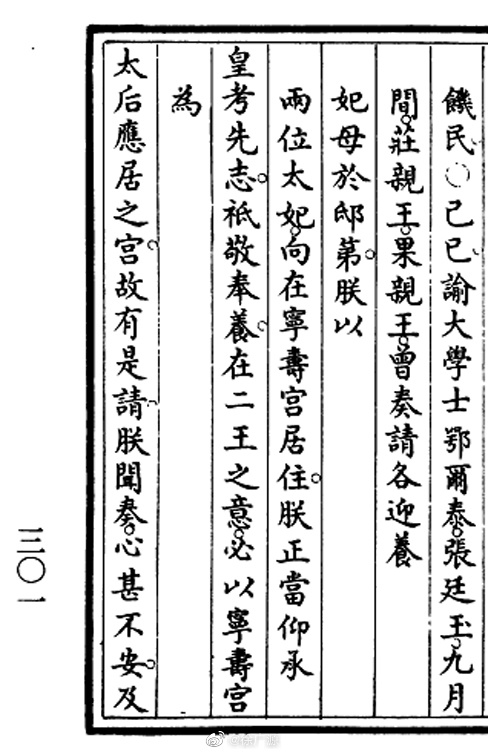 饑民〇己巳諭大學士鄂爾泰張廷玉九月
間莊親王果親王曾奏請各迎養
妃母於邸第朕以
兩位太妃向在寧壽宮居住朕正當仰承
皇考先志祗敬奉養在二王之意必以寧壽宮
為
太后應居之宮故有是請朕聞奏心甚不安及
三〇一